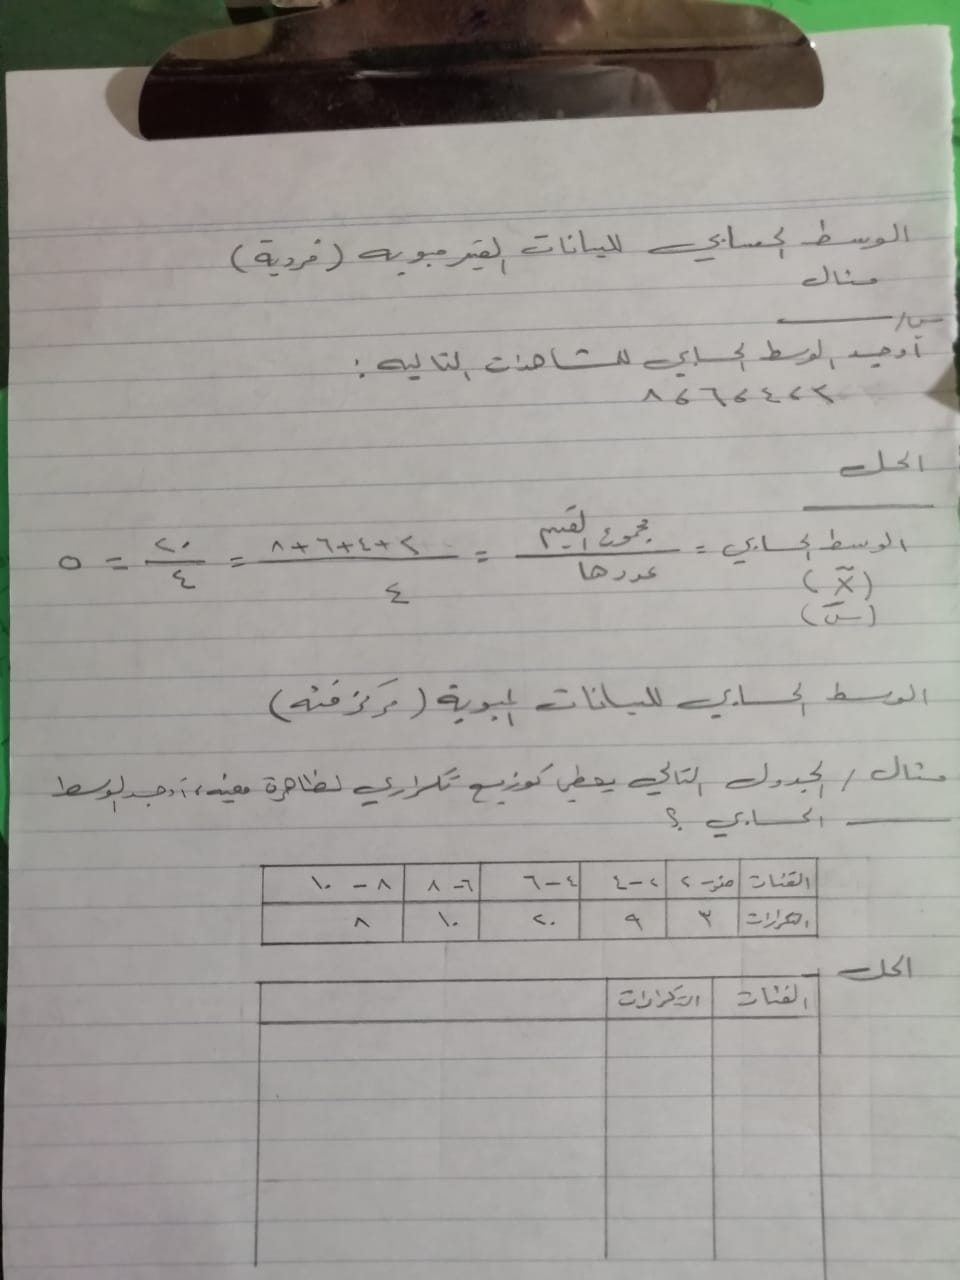 الوسط الحسابي للبيانات الغير مبوبه (فردية)
مثال
س/
أوجد الوسط الحسابي للمشاهدات التالية :
٢، ٤، ٦، ٨
الحل
الوسط الحسابي = مجموع القيم / عددها = ٢+٤+٦+٨ / ٤ = ٢٠ / ٤ = ٥
(x̄)
(س̄)
الوسط الحسابي للبيانات المبوبة (مركز فئه)
مثال / الجدول التالي يعطي توزيع تكراري لظاهرة معينه، أوجد الوسط
الحسابي ؟
الفئات صفر-٢ ٢-٤ ٤-٦ ٦-٨ ٨-١٠
التكرارات ٣ ٩ ٢٠ ١٠ ٨
الحل
الفئات التكرارات